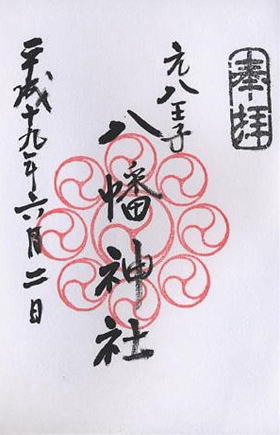 奉拝
元八王子
八幡神社
平成十九年六月二日